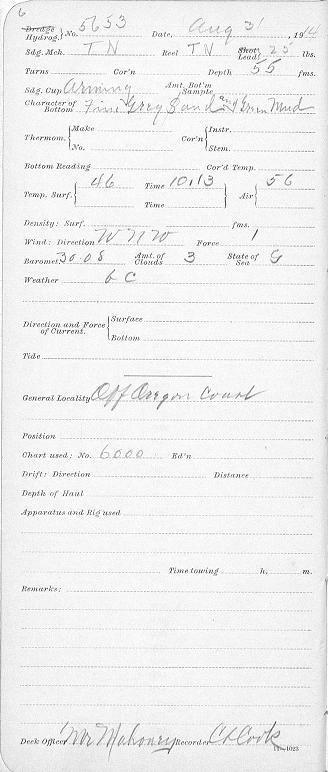 6
Dredge
Hydrog. No. 5653 Date, Aug 31, 1914
Sdg. Mch. TN Reel TN Shot Lead 25 lbs.
Turns Cor'n Depth 55 fms.
Sdg. Cup Arming Amt. Bot'm Sample
Character of Bottom Fine Grey Sand and Grn Mud
Thermom. Make No. Cor'n Instr. Stem.
Bottom Reading Cor'd Temp.
Temp. Surf. 46 Time 10.13 Time Air 56
Density: Surf. fms.
Wind: Direction WNW Force 1
Baromet 30.08 Amt. of Clouds 3 State of Sea G
Weather b c
Direction and Force of Current. Surface Bottom
Tide
General Locality Off Oregon Coast
Position
Chart used: No. 6000 Ed'n
Drift: Direction Distance
Depth of Haul
Apparatus and Rig used
Time towing h. m.
Remarks:
Deck Officer Mr Mahoney Recorder Cook
11—1023